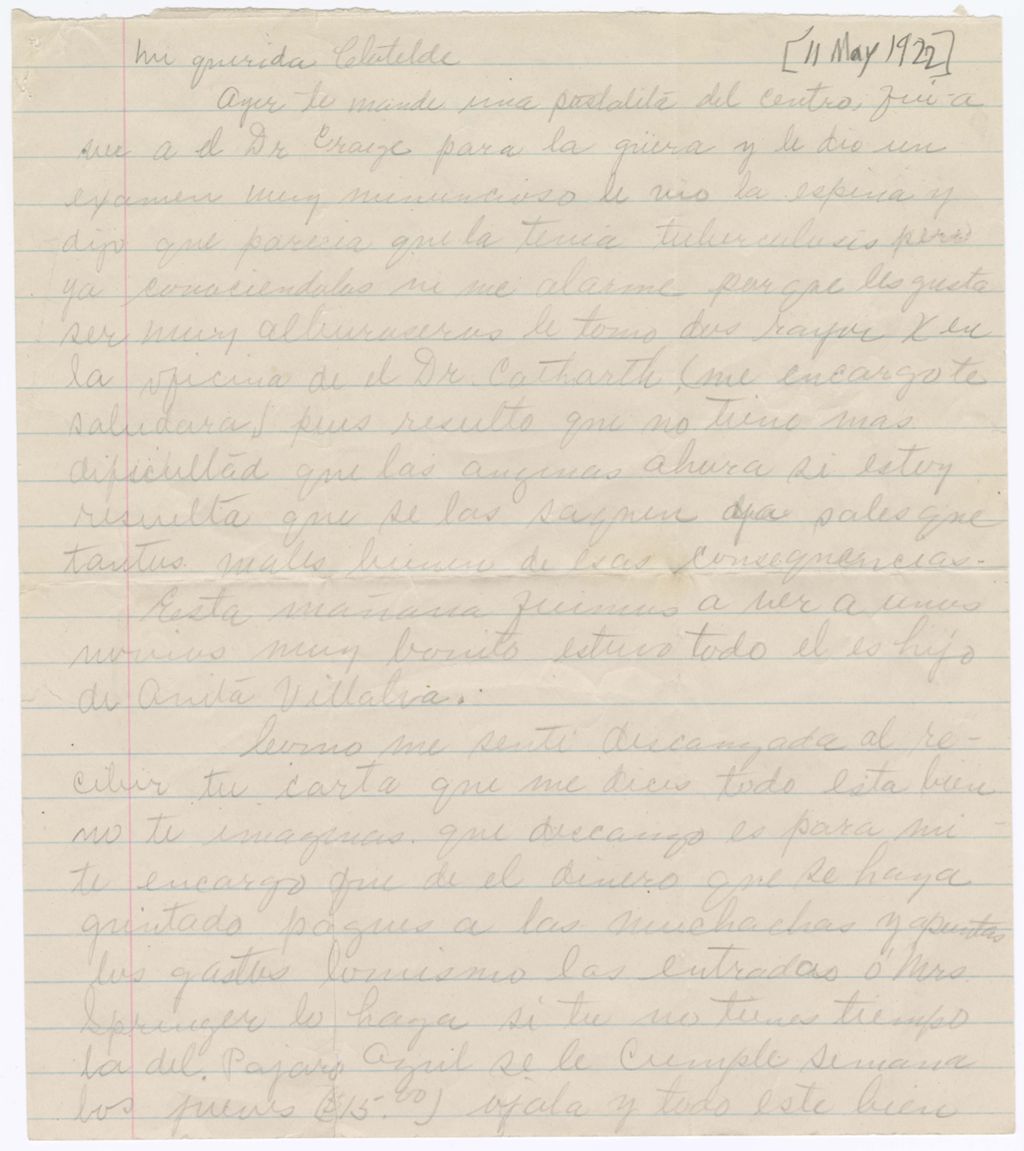 Mi querida Clotilde [11 May 1922]
Ayer te mande una postalita del centro, fui a
ver a el Dr Craige para la güera y le dio un
examen muy minuncioso le vio la espina y
dijo que parecia que la tenia tuberculosis pero
ya conociendolos ni me alarme porque les gusta
ser muy alburaseros le tomo dos rayos X en
la oficina de el Dr. Catharth (me encargo te
saludara) pues resulto que no tiene mas
dificultad que las anginas ahora si estoy
resuelta que se las saquen ya sales que
tantos males bienen de esas consequencias.
Esta mañana fuimos a ver a unos
novios muy bonito estuvo todo el es hijo
de Anita Villalva.
Como me senti descanzada al re-
cibir tu carta que me dices todo esta bien
no te imaginas que descanzo es para mi
te encargo que de el dinero que se haya
quintado pagues a las muchachas y apuntas
los gastos lo mismo las entradas o Mrs.
Springer lo haga si tu no tienes tiempo
la del Pajaro Azul se le cumple semana
los jueves ($15.00) ojala y todo este bien